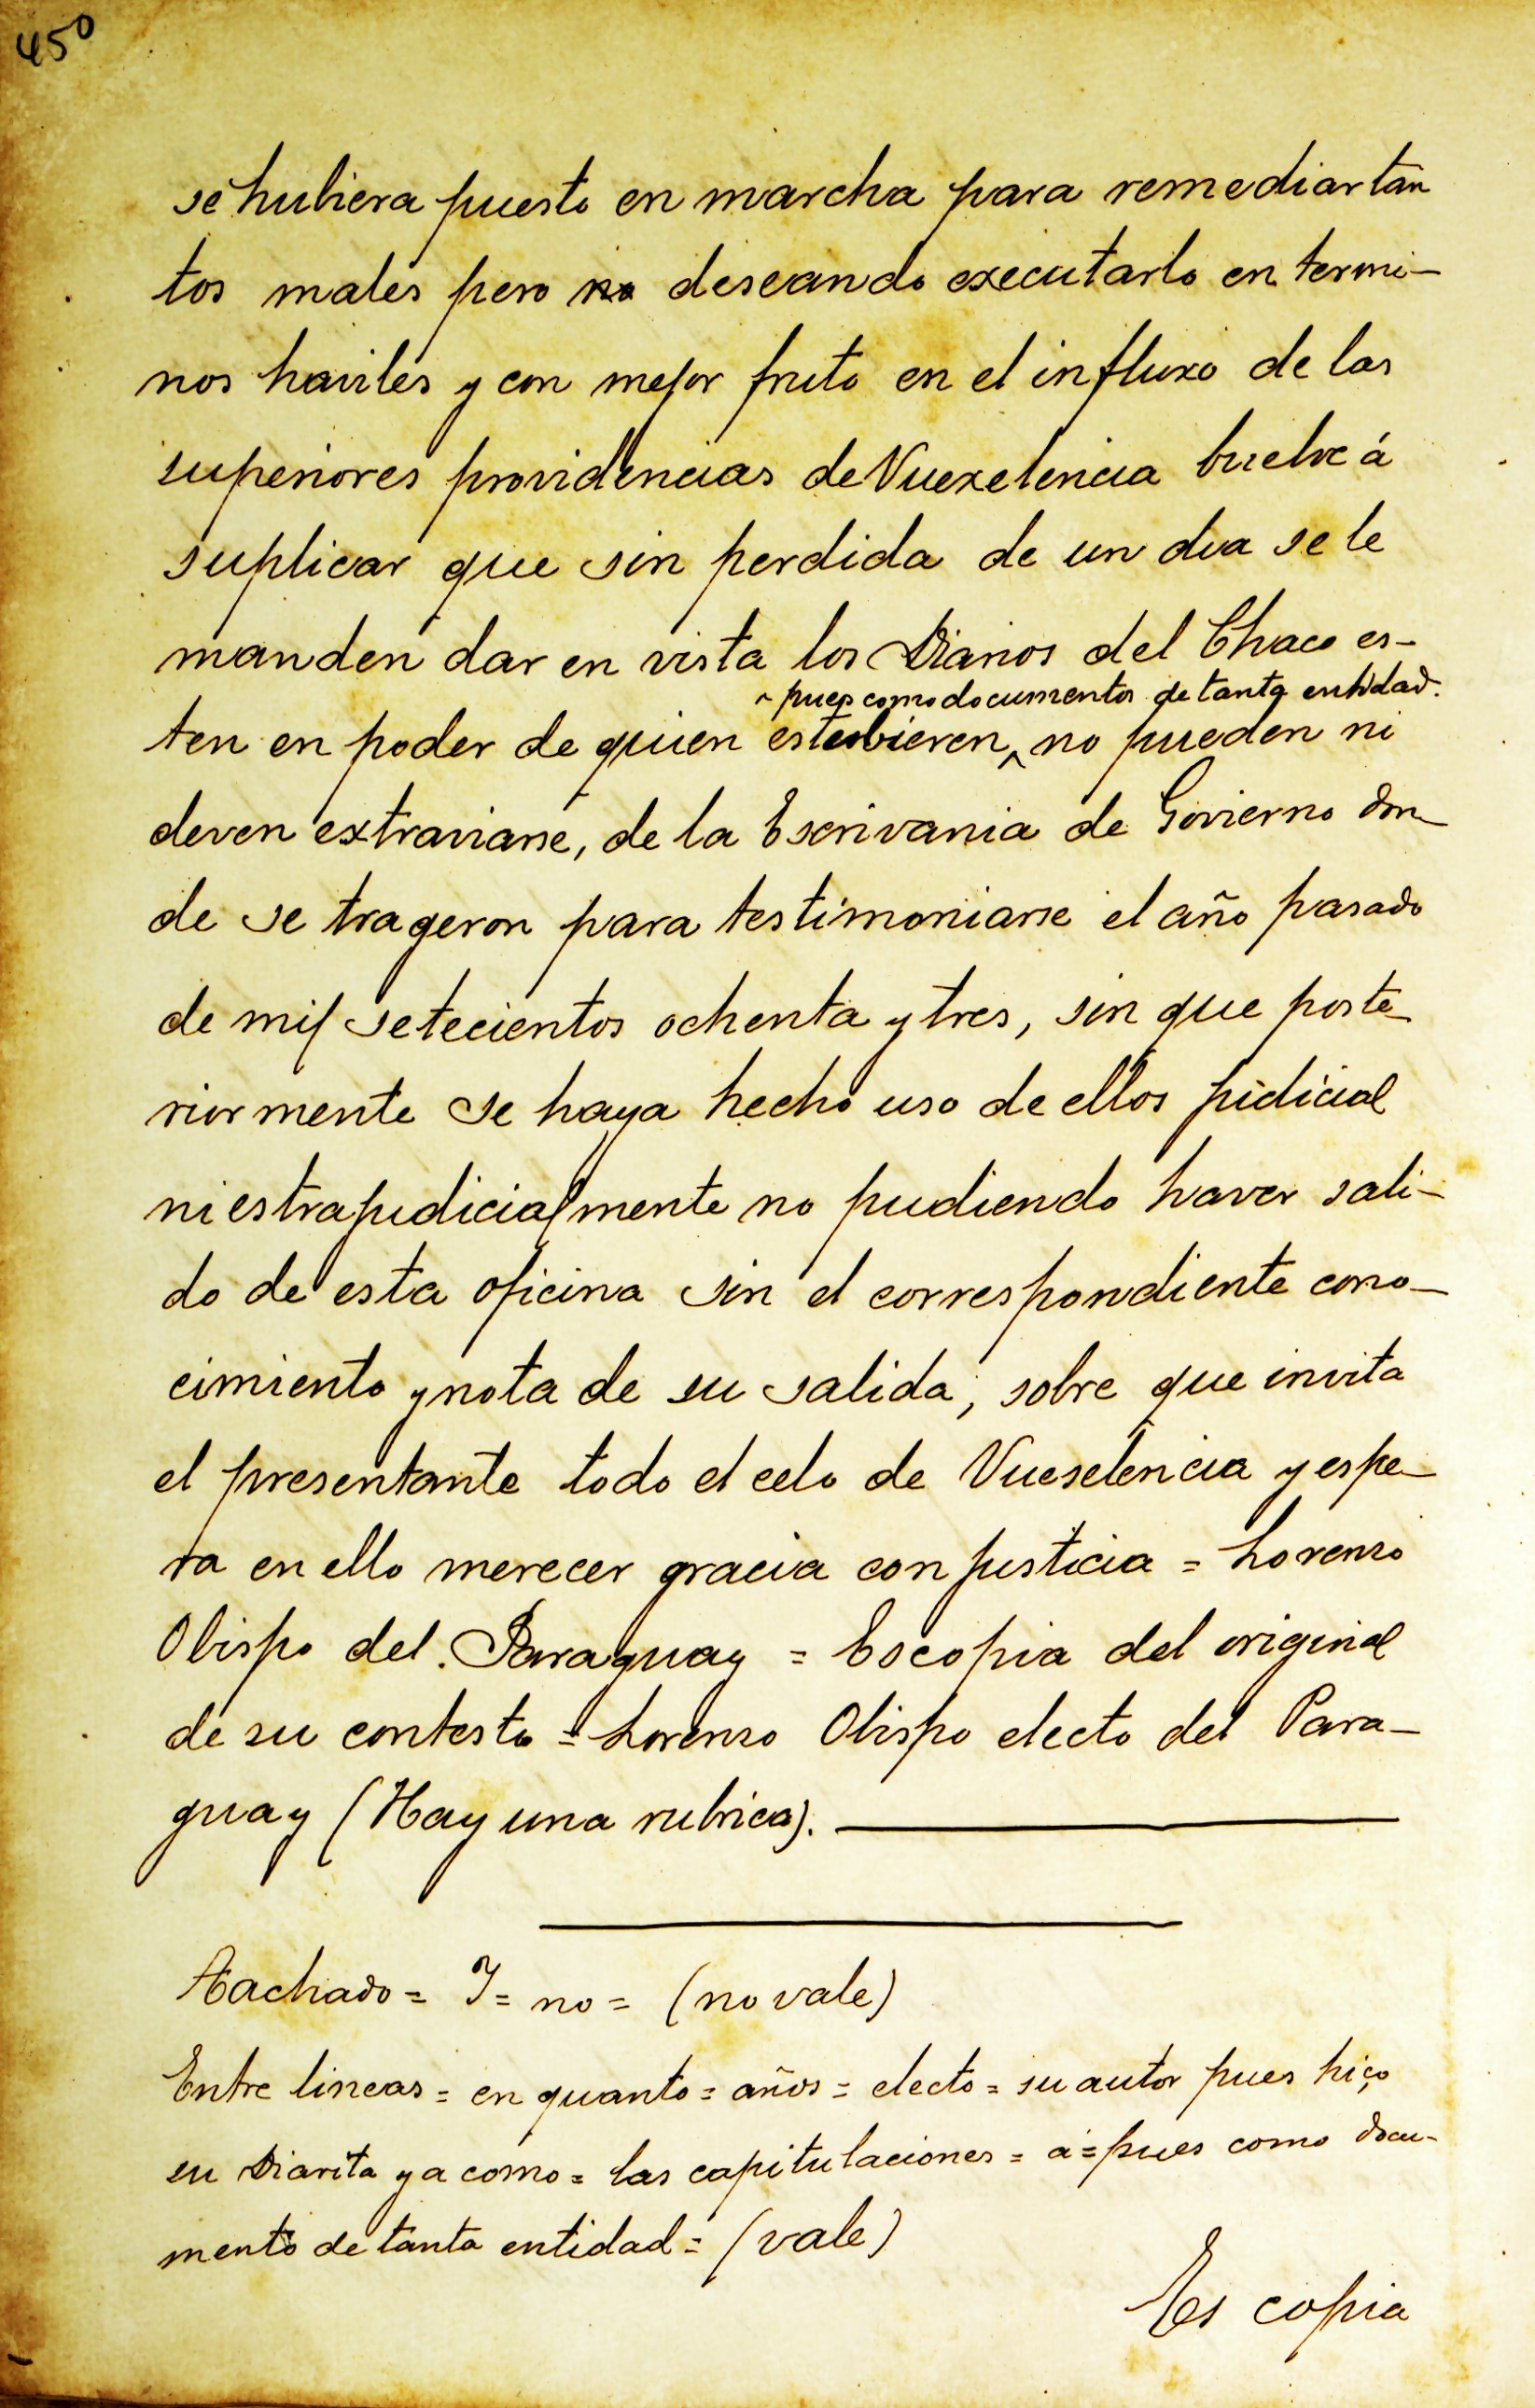 450
se hubiera puesto en marcha para remediar tan
tos males pero no deseando executarlo en termi-
nos haviles y con mejor fruto en el influxo de las
superiores providencias de Vuexelencia buelve á
suplicar que sin perdida de un dia se le
manden dar en vista los Diarios del Chaco es-
pues como documentos de tanta entidad.
ten en poder de quien estubieren, no pueden ni
deven extraviarse, de la Escrivania de Govierno don-
de se trageron para testimoniarse el año pasado
de mil setecientos ochenta y tres, sin que poste-
riormente se haya hecho uso de ellos judicial
ni estrajudicialmente no pudiendo haver sali-
do de esta oficina sin el correspondiente cono-
cimiento y nota de su salida, sobre que invita
el presentante todo el celo de Vueselencia y espe-
ra en ello merecer gracia con justicia = Lorenzo
Obispo del Paraguay = Es copia del original
de su contesto = Lorenzo Obispo electo del Para-
guay (Hay una rubrica).
Tachado = I = no = (no vale)
Entre lineas = en quanto = años = electo = su autor pues hiço
su Diarita ya como = las capitulaciones = á = pues como docu-
mento de tanta entidad = (vale)
Es copia